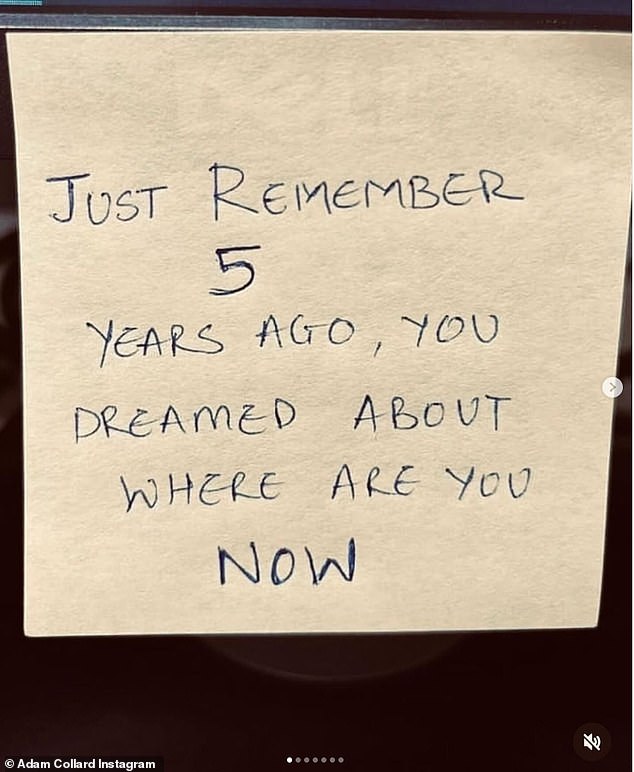 JUST REMEMBER
5
YEARS AGO, YOU
DREAMED ABOUT
WHERE ARE YOU
NOW
© Adam Collard Instagram